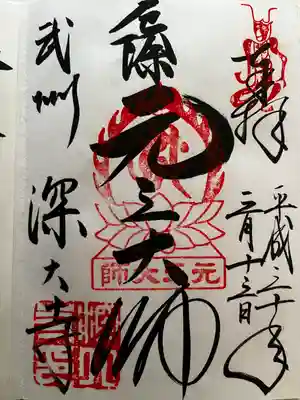 奉拝
平成三十年
三月十三日
厄除 元三大師
元三大師
武州 深大寺